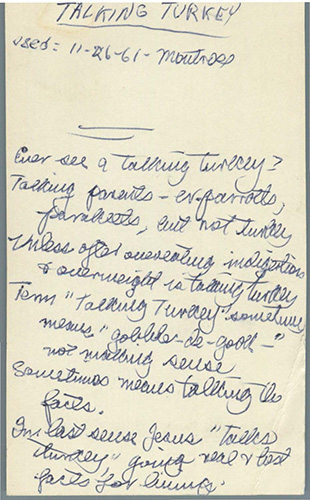 TALKING TURKEY
Used = 11-26-61 - Montross
Ever see a talking turkey?
Talking parents - er parrots,
parakeets, but not turkey
Unless after overeating indigestion
& overweight is talking turkey
Term "Talking Turkey" sometimes
means "gobble-de-gook-"
not making sense
Sometimes means talking the
facts.
In last sense Jesus "talks
turkey" giving real & best
facts for living.